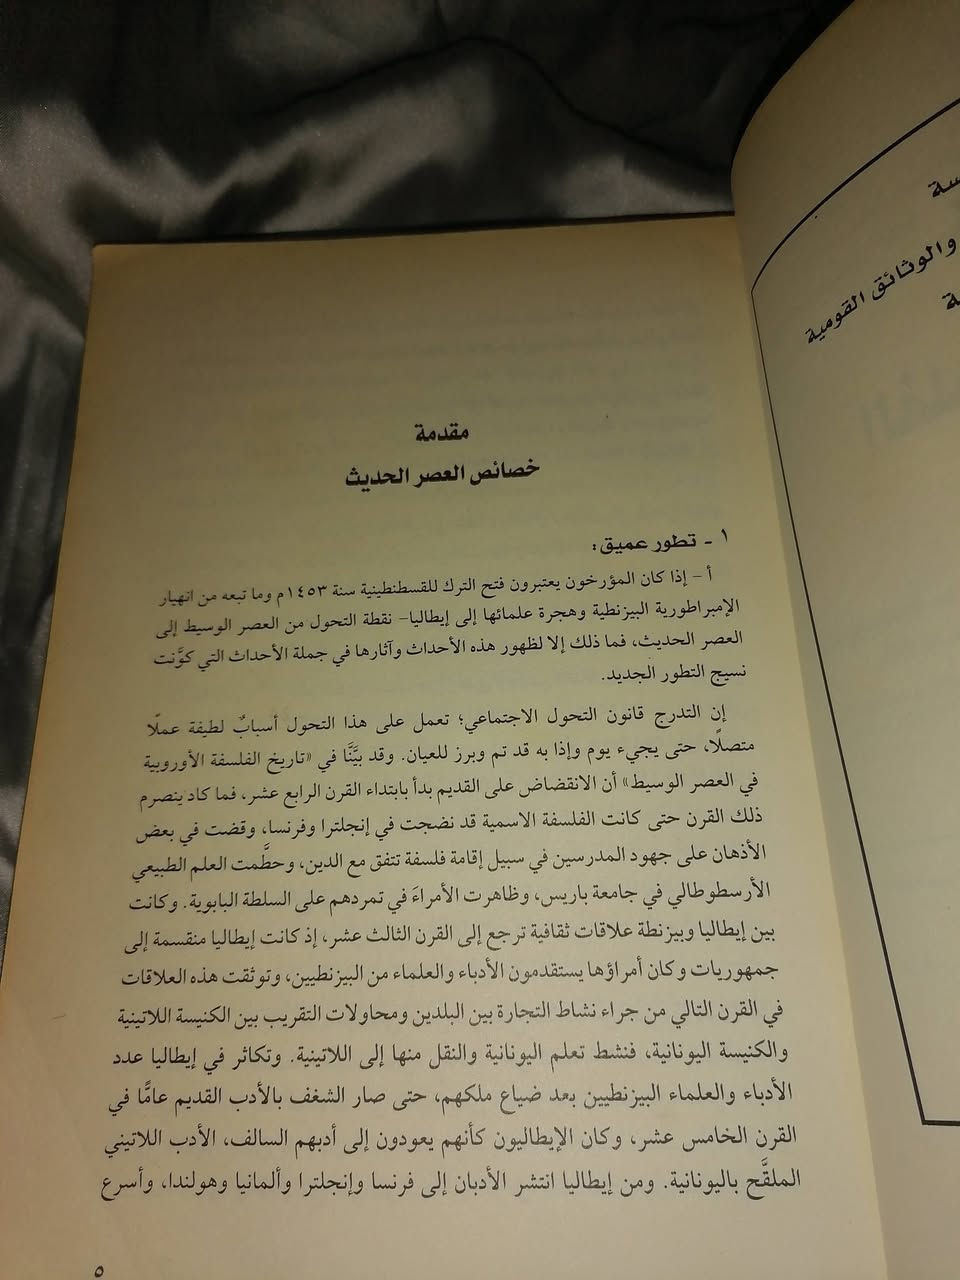 والوثائق القومية
مقدمة
خصائص العصر الحديث
١ - تطور عميق:
أ - إذا كان المؤرخون يعتبرون فتح الترك للقسطنطينية سنة ١٤٥٣م وما تبعه من انهيار
الإمبراطورية البيزنطية وهجرة علمائها إلى إيطاليا- نقطة التحول من العصر الوسيط إلى
العصر الحديث، فما ذلك إلا لظهور هذه الأحداث وآثارها في جملة الأحداث التي كوَّنت
نسيج التطور الجديد.
إن التدرج قانون التحول الاجتماعي؛ تعمل على هذا التحول أسبابٌ لطيفة عملًا
متصلًا، حتى يجيء يوم وإذا به قد تم وبرز للعيان. وقد بيَّنَّا في «تاريخ الفلسفة الأوروبية
في العصر الوسيط» أن الانقضاض على القديم بدأ بابتداء القرن الرابع عشر، فما كاد ينصرم
ذلك القرن حتى كانت الفلسفة الاسمية قد نضجت في إنجلترا وفرنسا، وقضت في بعض
الأذهان على جهود المدرسين في سبيل إقامة فلسفة تتفق مع الدين، وحطَّمت العلم الطبيعي
الأرسطوطالي في جامعة باريس، وظاهرت الأمراءَ في تمردهم على السلطة البابوية. وكانت
بين إيطاليا وبيزنطة علاقات ثقافية ترجع إلى القرن الثالث عشر، إذ كانت إيطاليا منقسمة إلى
جمهوريات وكان أمراؤها يستقدمون الأدباء والعلماء من البيزنطيين، وتوثقت هذه العلاقات
في القرن التالي من جراء نشاط التجارة بين البلدين ومحاولات التقريب بين الكنيسة اللاتينية
والكنيسة اليونانية، فنشط تعلم اليونانية والنقل منها إلى اللاتينية. وتكاثر في إيطاليا عدد
الأدباء والعلماء البيزنطيين بعد ضياع ملكهم، حتى صار الشغف بالأدب القديم عامًّا في
القرن الخامس عشر، وكان الإيطاليون كأنهم يعودون إلى أدبهم السالف، الأدب اللاتيني
الملقَّح باليونانية. ومن إيطاليا انتشر الأدبان إلى فرنسا وإنجلترا وألمانيا وهولندا، وأسرع
٥